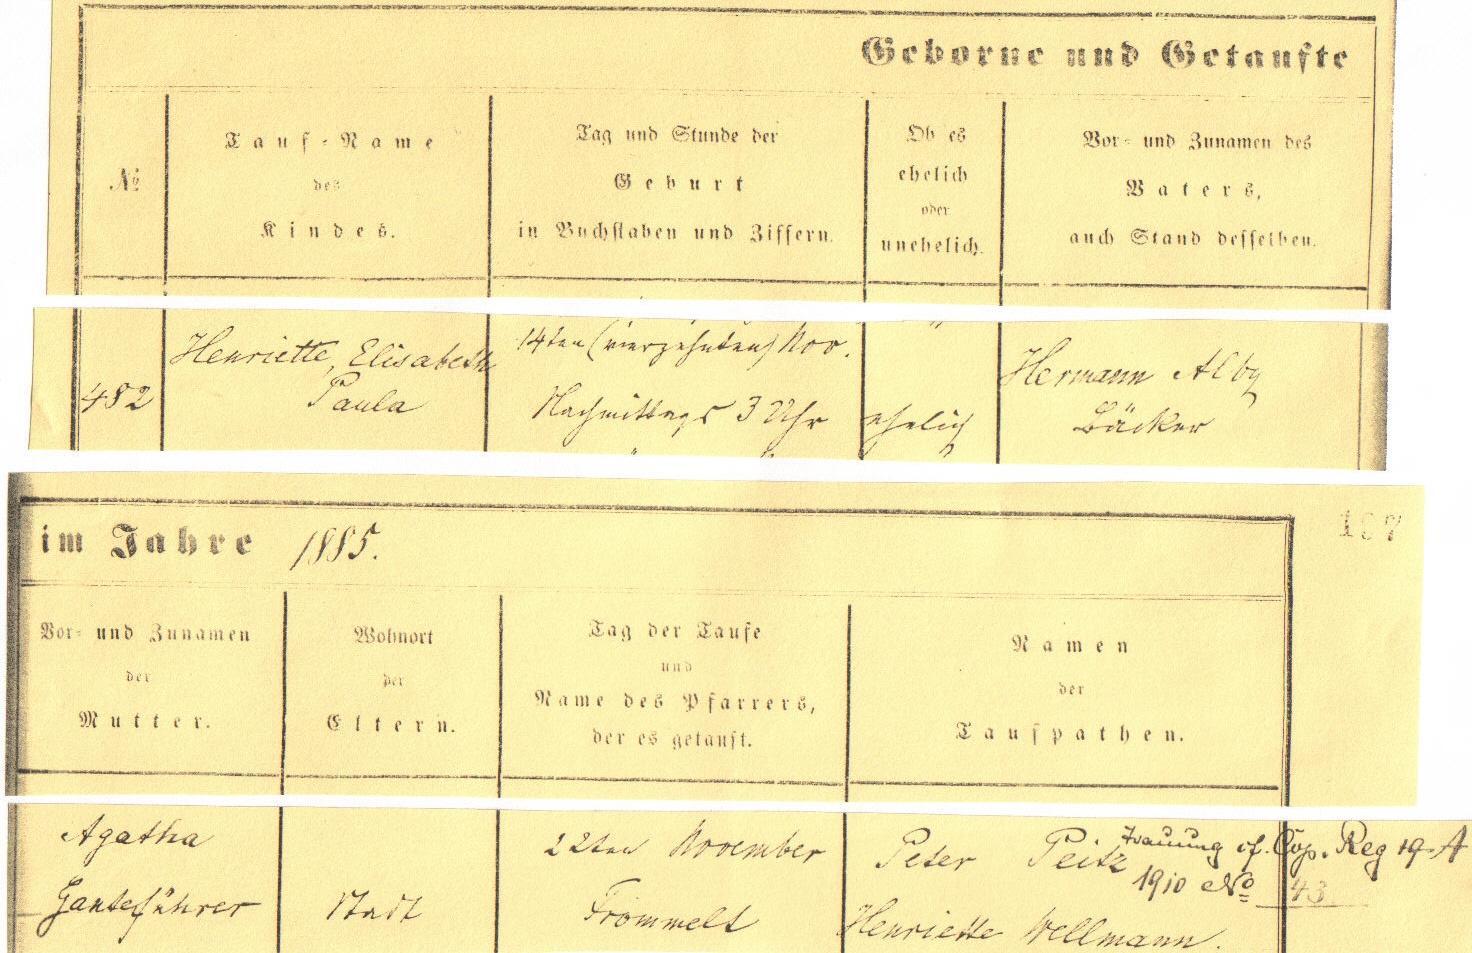 Geborne und Getaufte
№
Tauf-Name
des
Kindes.
Tag und Stunde der
Geburt
in Buchstaben und Ziffern.
Ob es
ehelich
oder
unehelich.
Vor- und Zunamen des
Vaters,
auch Stand desselben.
482
Henriette, Elisabeth
Paula
14ten (vierzehnten) Nov.
Nachmittags 3 Uhr
ehelich
Hermann Alby
Bäcker
im Jahre 1885.
107
Vor- und Zunamen
der
Mutter.
Wohnort
der
Eltern.
Tag der Taufe
und
Name des Pfarrers,
der es getauft.
Namen
der
Taufpathen.
Agatha
Ganteführer
Stadt
22ten November
Frommelt
Peter Peitz
Henriette Wellmann.
Trauung cf. Cop. Reg 19 A
1910 No 43